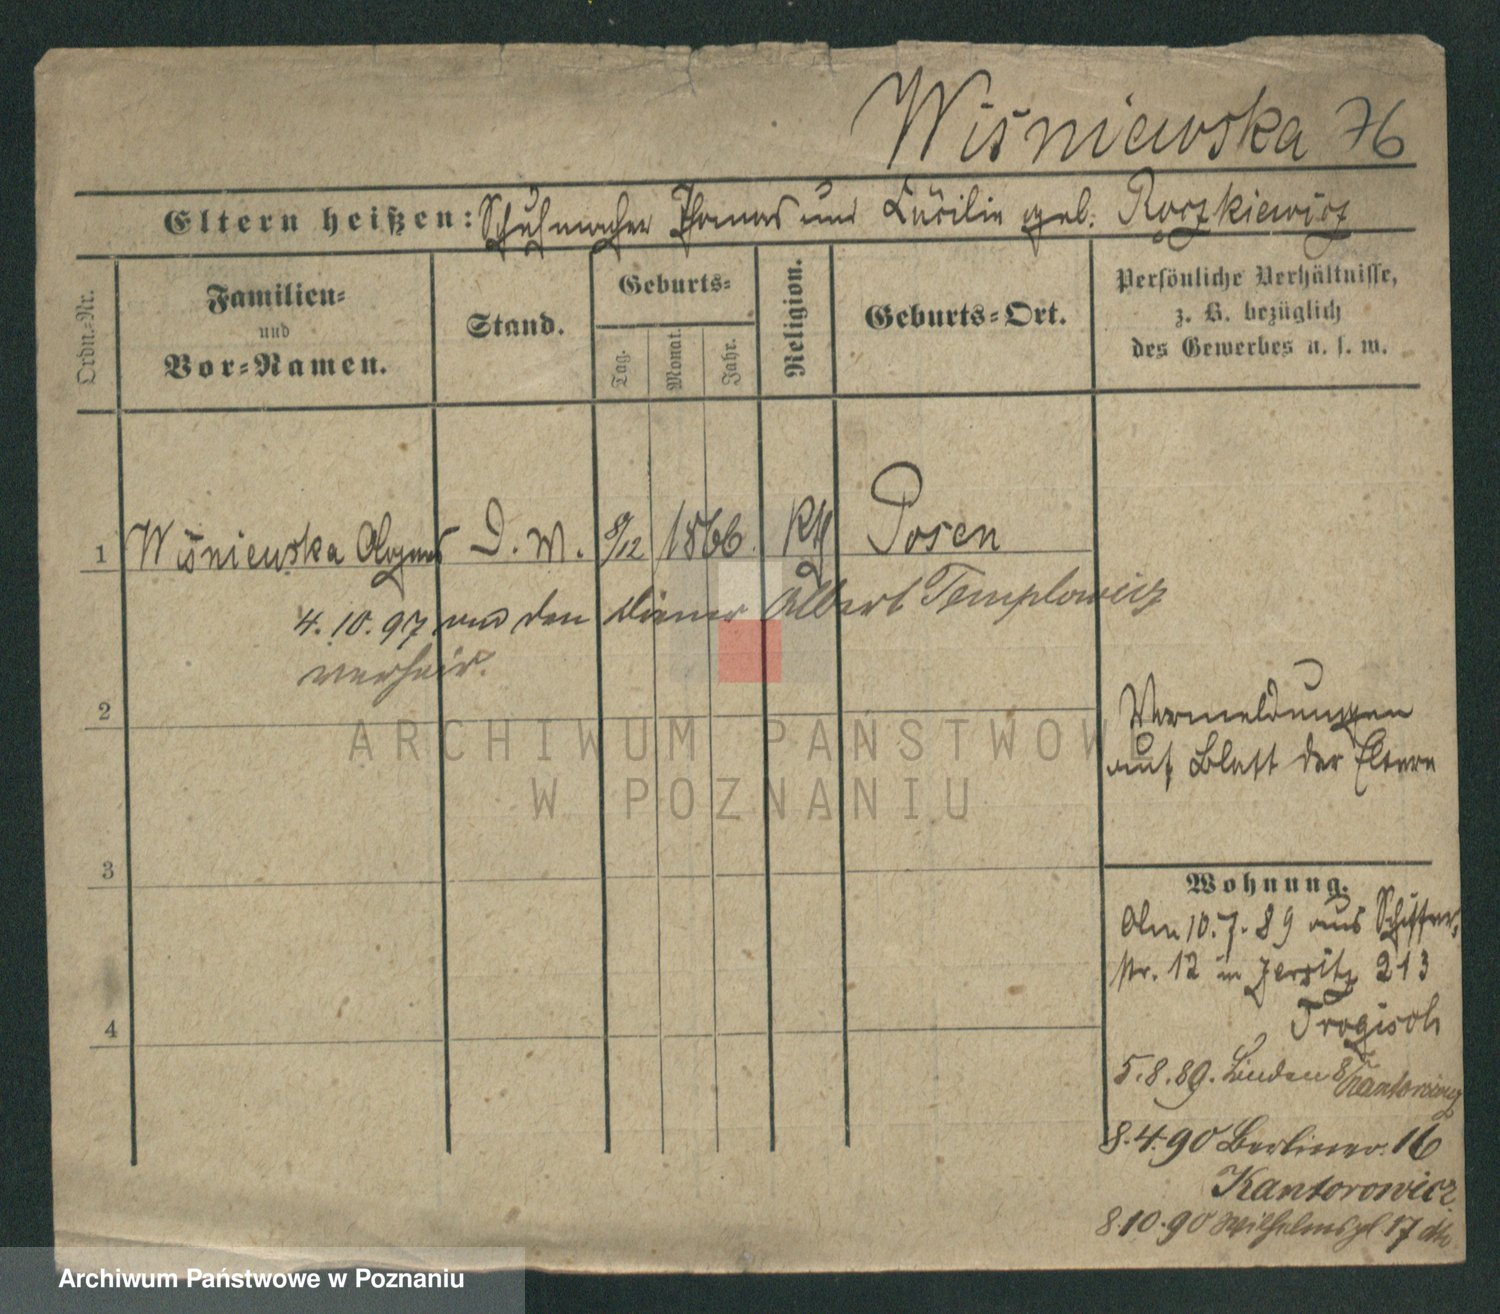 Wiśniewska 76
Eltern heißen: Schuhmacher Thomas und Cäcilie geb. Roszkiewicz
Ordn.=Nr.
Familien=
und
Vor=Namen.
Stand.
Geburts=
Tag.
Monat.
Jahr.
Religion.
Geburts=Ort.
Persönliche Verhältnisse,
z. B. bezüglich
des Gewerbes u. s. w.
1 Wiśniewska Agnes D. M. 8/12 1866. Kth Posen
4.10.97 an den Diener Albert Templowicz
verheir.
2
3
4
Vermeldungen
auf Blatt der Eltern
Wohnung.
Am 10.7.89 aus Schiffer=
str. 12 in Jersitz 213
Trogisch
5.8.89. Linden 8 Kantorowicz
8.4.90 Berliner. 16
Kantorowicz
8.10.90 Wilhelmspl 17 dto
ARCHIWUM PAŃSTWOWE
W POZNANIU
Archiwum Państwowe w Poznaniu